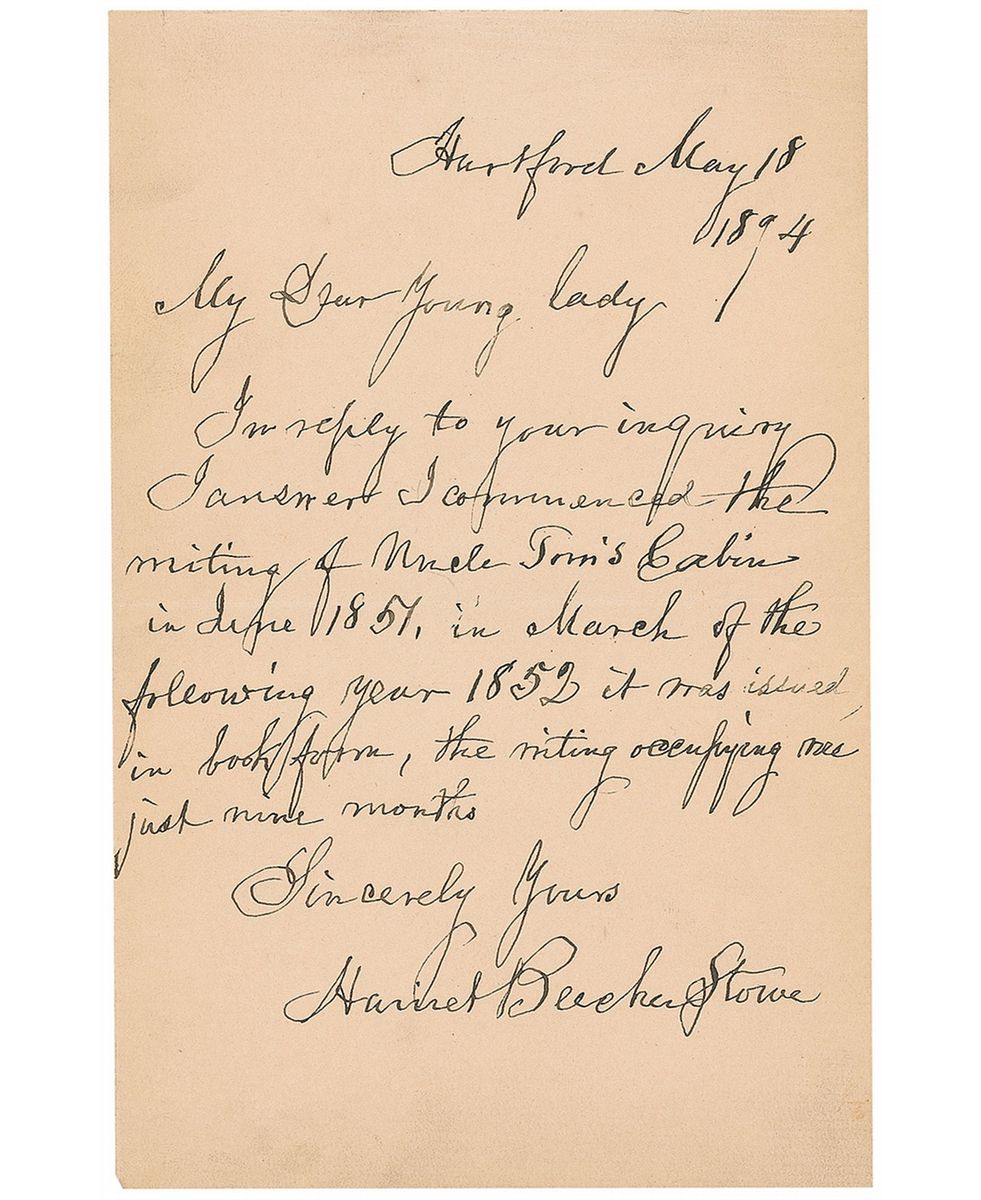 Hartford May 18
1894
My Dear Young lady
In reply to your inquiry
I answer I commenced the
writing of Uncle Tom's Cabin
in June 1851, in March of the
following year 1852 it was issued
in book form, the writing occupying me
just nine months
Sincerely Yours
Harriet Beecher Stowe